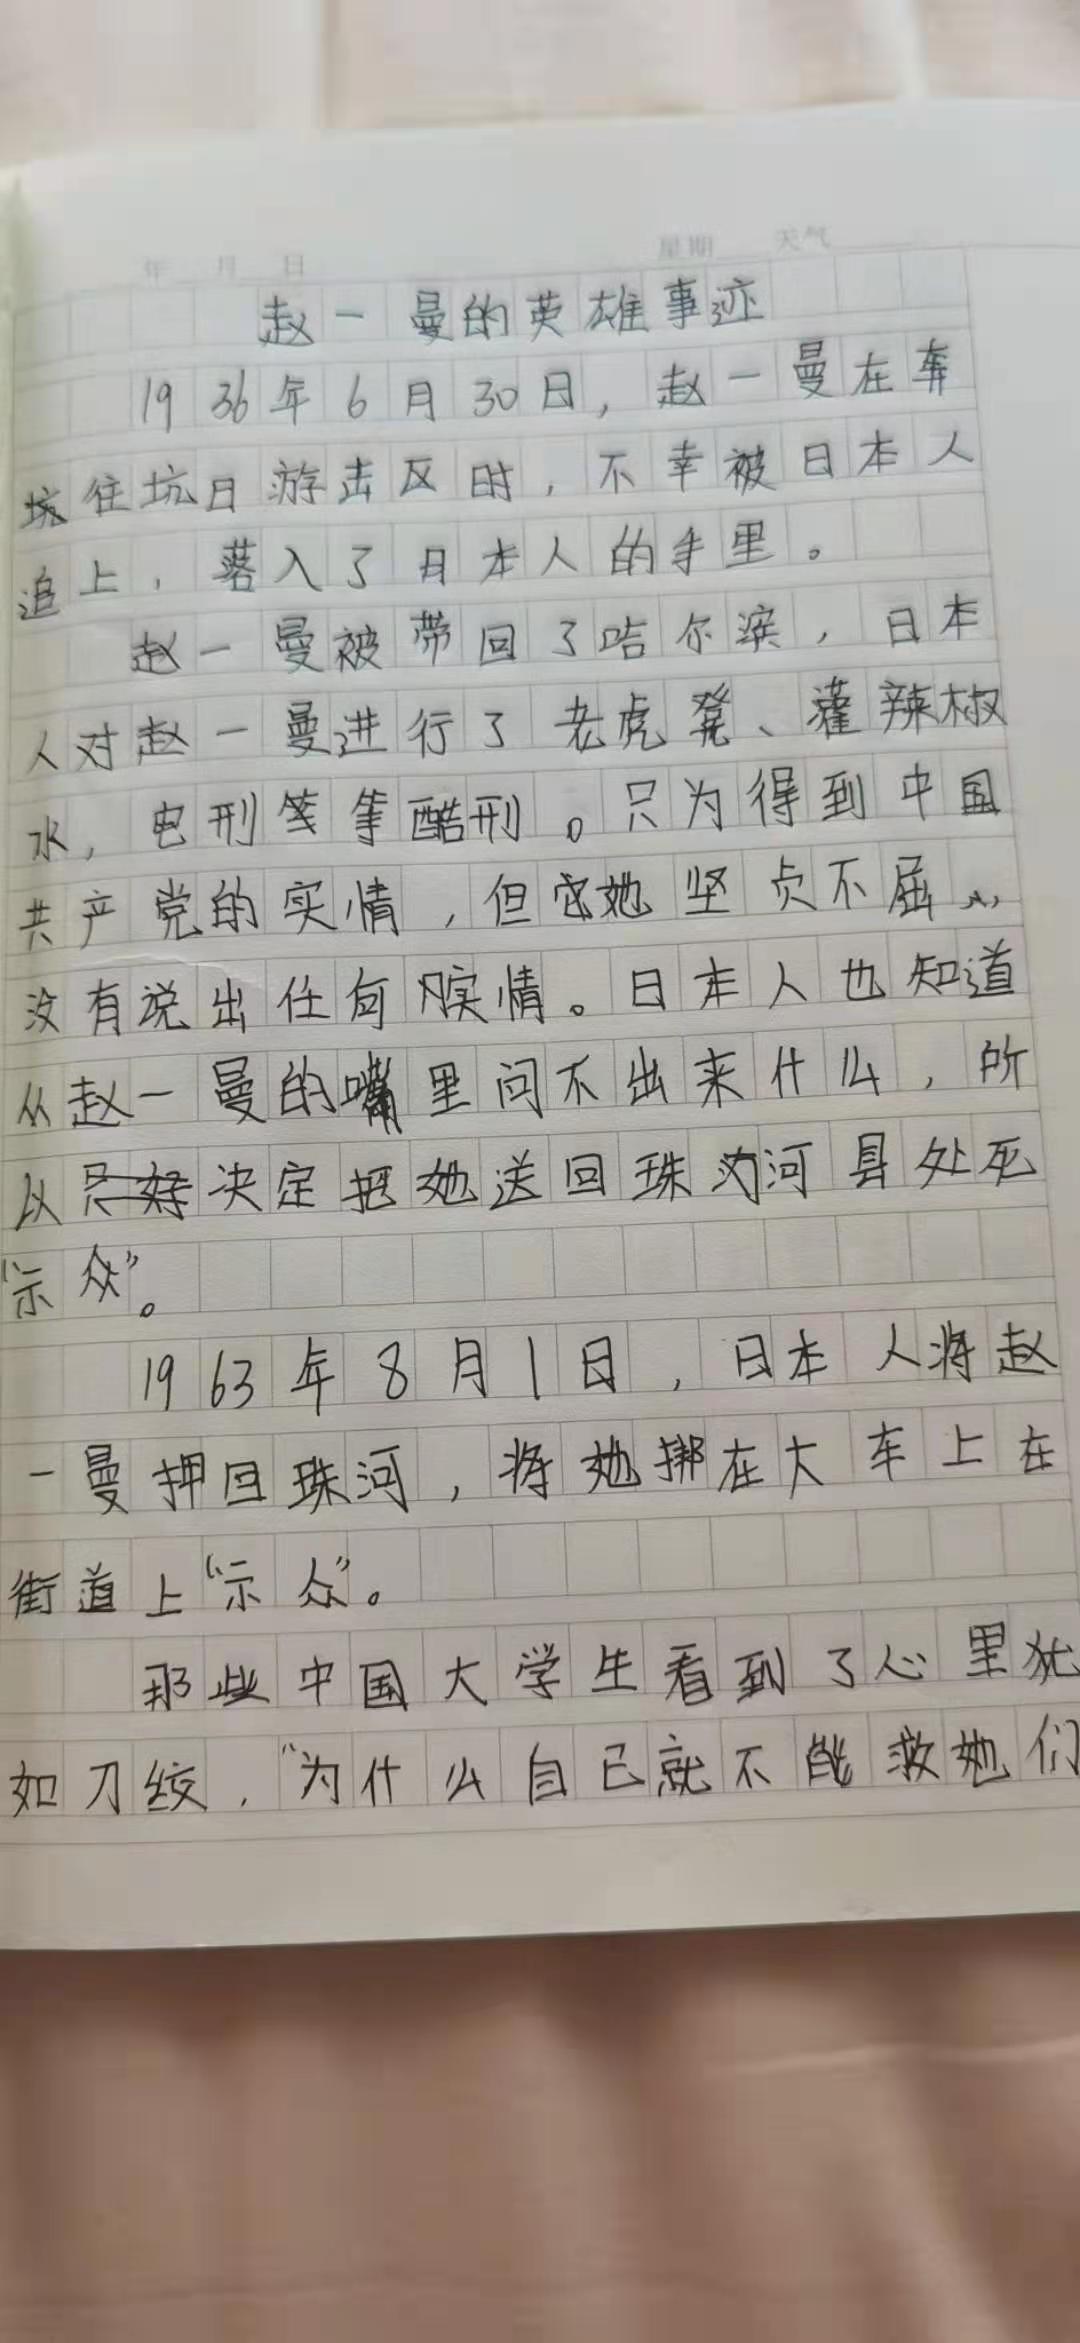 年 月 日 星期 天气
赵一曼的英雄事迹
1936年6月30日，赵一曼在奔
往坑日游击区时，不幸被日本人
追上，落入了日本人的手里。
赵一曼被带回了哈尔滨，日本
人对赵一曼进行了老虎凳、灌辣椒
水，电刑等酷刑。只为得到中国
共产党的实情，但她坚贞不屈，
没有说出任何实情。日本人也知道
从赵一曼的嘴里问不出来什么，所
以只好决定把她送回珠河县处死
“示众”。
1963年8月1日，日本人将赵
一曼押回珠河，将她绑在大车上在
街道上“示众”。
那些中国大学生看到了心里犹
如刀绞，“为什么自己就不能救她们